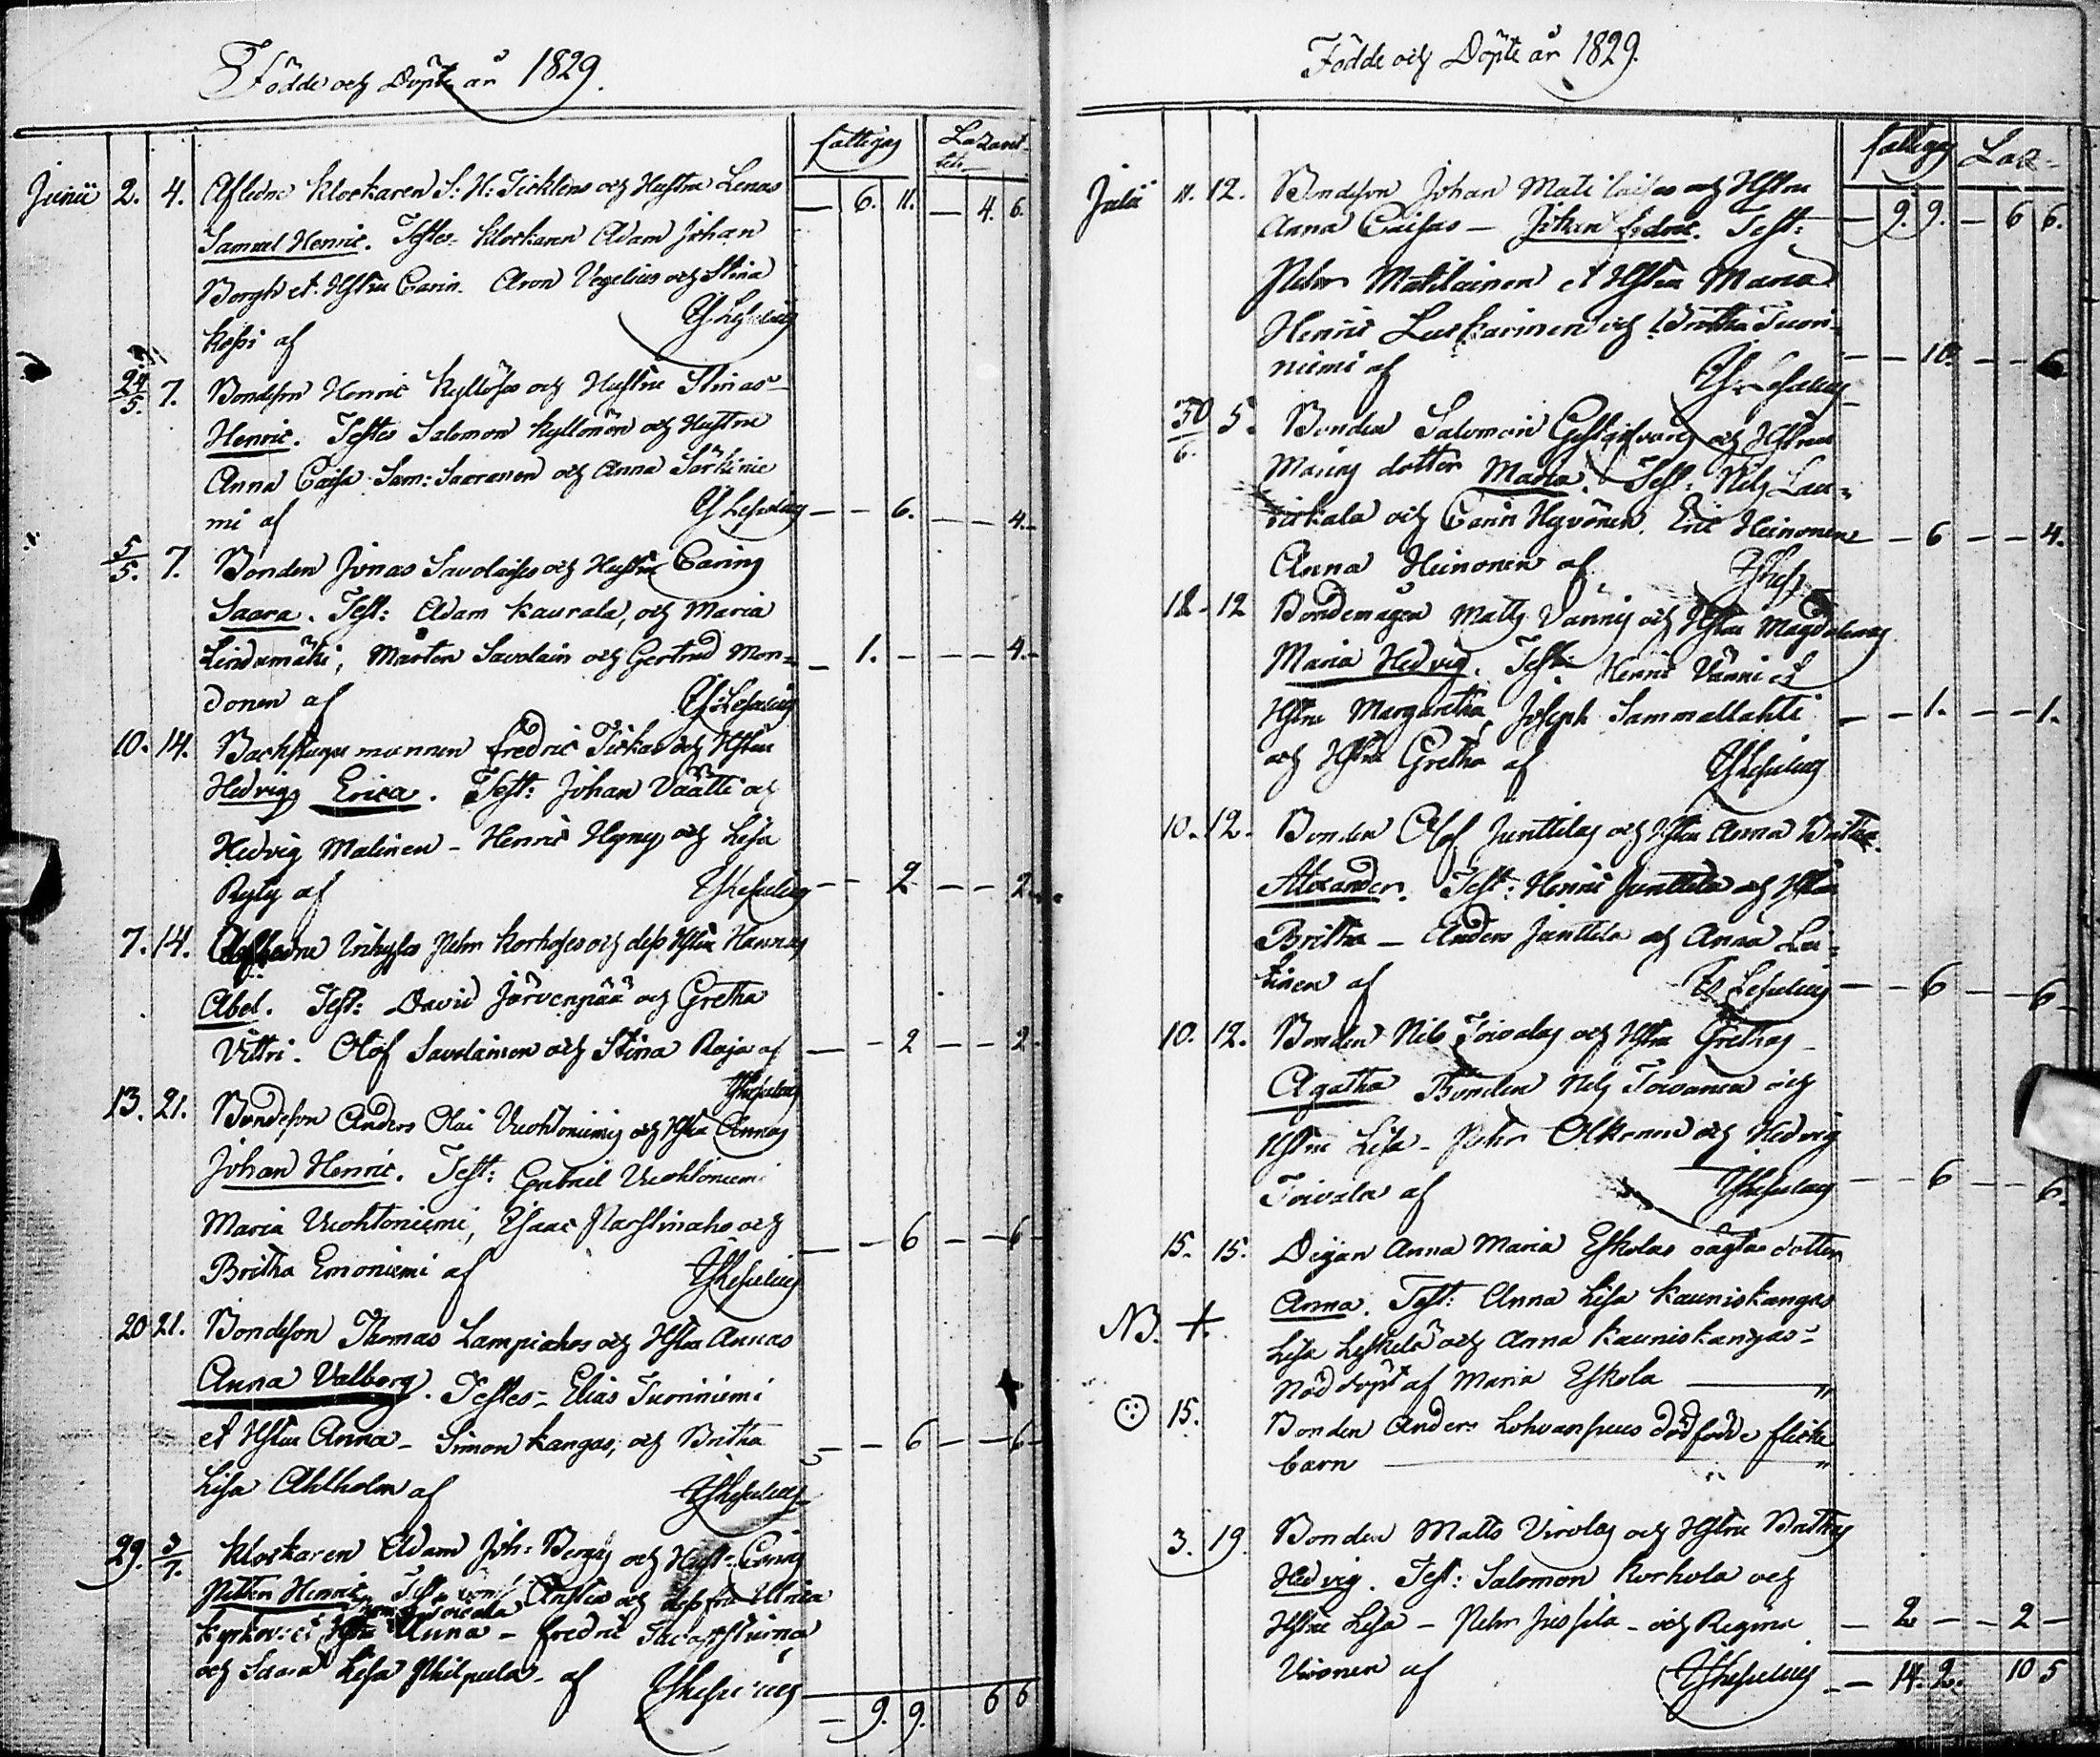 Födde och Döpte år 1829.
fattigas Lazaret-
tets
Junii 2. 4. Afledne Klockaren S: H: Ticklens och Hustru Lenas — 6. 11. — 4. 6.
Samuel Henric. Testes Klockaren Adam Johan
Bergh et Hstru Carin. Aron Vegelius och Stina
af
24/5. 7. Bondeson Henric Kyllöses och Hustru Stinas
Henric. Testes Salomon Kyllönen och Hustru
Anna Caisa Sam: Saaranen och Anna Särkinie
mi af — — 6. — — 4.
5/5. 7. Bonden Jonas Savolaises och Hustru Carins
Saara. Test: Adam Kaurala, och Maria
Lindumäki, Mårten Savolain och Gertrud Mon- — 1. — — — 4.
donen af
10. 14. Backstugu mannen Fredric Tickas och Hstru
Hedvigs Erica. Test: Johan Väätti och
Hedvig Malinen — Henric Hyyny och Lisa
Ryty af — — 2 — — 2.
7. 14. Inhyses Pehr Korhoses och dess Hstru Hannas
Abel. Test: David Järvenpää och Gretha
Vittri. Olof Savolainen och Stina Raja af — — 2 — — 2
13. 21. Bondeson Anders Olai Vuohtoniemis och Hstru Annas
Johan Henric. Test: Gabriel Vuohtoniemi
Maria Vuohtoniemi, Isaac Parstinaho och — — 6 — — 6
Britha Emoniemi af
20 21. Bondeson Thomas Lampiahos och Hstru Annas
Anna Valborg. Testes — Elias Tuoriniemi
et Hstru Anna — Simon Kangas, och Britha — — 6 — — 6
Lisa Ahlholm af
29. 3/7. Klockaren Adam Joh: Berghs och Hust: Carins
Petter Henric. Test: och dess fru Ulrica
Kyrkov: et Hstru Anna — Fredric
och Saara Lisa Philpula af
— 9. 9. 6 6
Födde och Döpte år 1829.
fattigas Laz-
Julii 11. 12. Bondeson Johan Matilaises och Hstru
Anna Caisas — Johan Fredric. Test: — 9. 9. — 6 6.
Pehr Matilainen et Hstru Maria
Henric Luskarinen och Britha Tuori-
niemi af — — 10. — — 6
30/6. 5. Bonden Salomon Gestgifvares och Hstrus
Marias dotter Maria. Test: Nils Lau-
rikala och Carin Hyvönen. Eric Heinonen — — 6 — — 4.
Anna Heinonen af
12 12 Bondemågen Matts Vännis och Hstru Magdalenas
Maria Hedvig. Test: Henric Vänni et
Hstru Margaretha, Joseph Sammallahti — — 1. — — 1.
och Hstru Gretha af
10. 12. Bonden Olof Junttilas och Hstru Anna Brithas
Alexander. Test: Henric Junttila och Hstru
Britha — Anders Junttila och Anna Lei-
tinen af — — 6 — — 6
10. 12. Bonden Nils Toivolas och Hstru Grethas
Agatha Bonden Nils Toivanen och
Hstru Lisa — Pehr Olkonen och Hedvig
Toivola af — — 6 — — 6.
15. 15. Pigan Anna Maria Eskolas oägta dotter
Anna. Test: Anna Lisa Kauniskangas
NB. +. Lisa Leskelä och Anna Kauniskangas
Nöddöpt af Maria Eskola — „
15. Bonden Anders Lohvansuus dödfödde flicke
barn — „
3. 19. Bonden Matts Virolas och Hstru Brithas
Hedvig. Test: Salomon Korhola och
Hstru Lisa — Pehr Jussila — och Regina — 2 — — 2 —
Vironen af
— 14. 2. 10 5